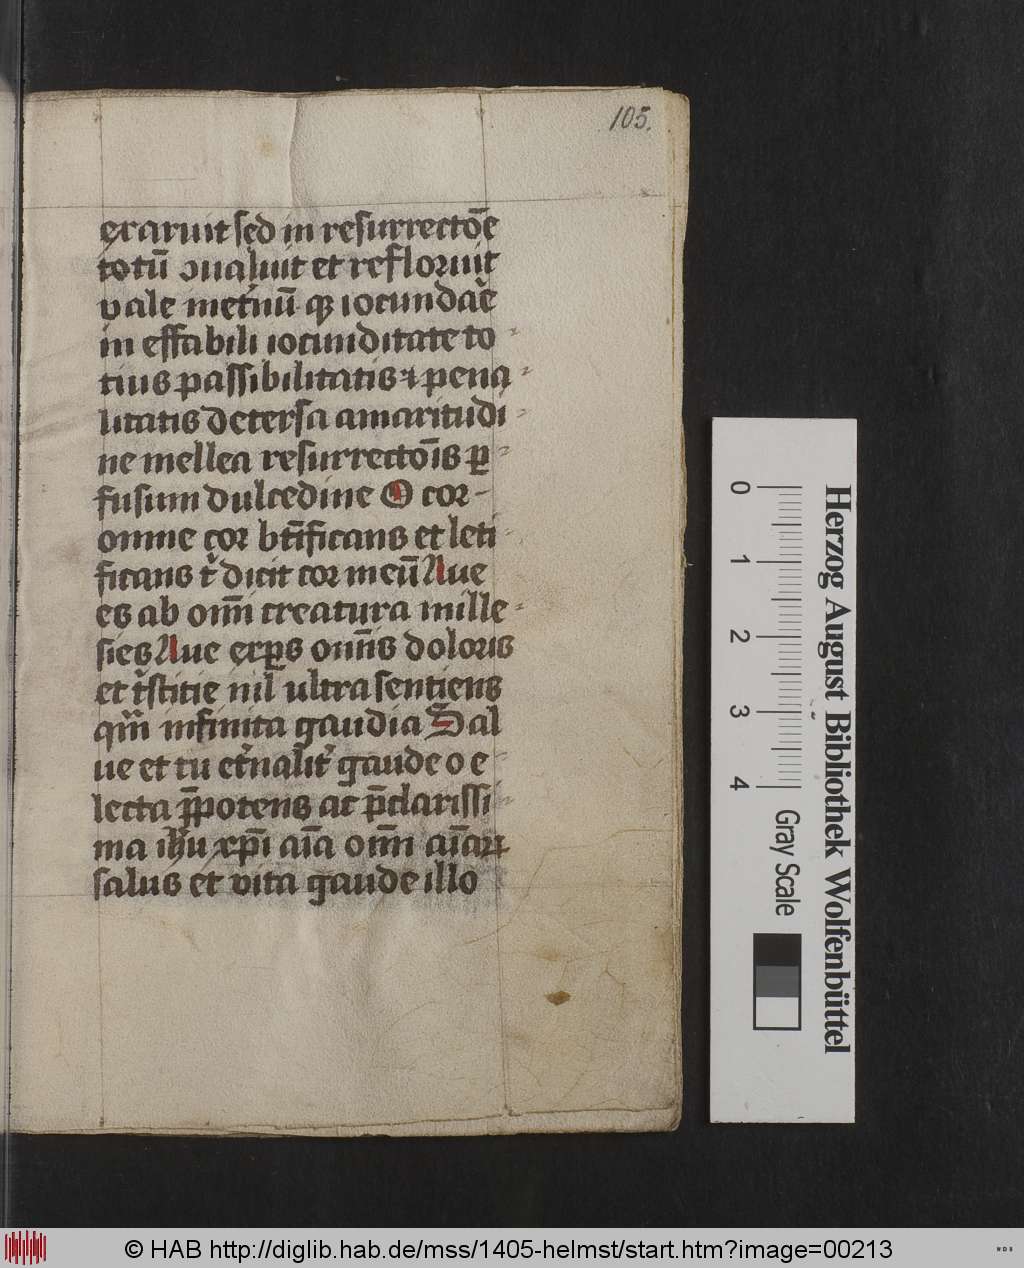 105.
exaruit sed in resurrectōe
totū ↄualuit et refloruit
vale met̛nū qꝫ iocundac̄e
in effabili iocunditate to-
tius passibilitatis ⁊ pena-
litatis detersa amaritudi-
ne mellea resurrectōis ꝑ-
fusum dulcedine O cor-
omne cor btīficans et leti-
ficans t͛ dicit cor meū Aue
es ab omī creatura mille-
sies Aue exꝑs omīs doloris
et t͛stitie nil ultra sentiens
qm̄ infinita gaudia Sal
ue et tu et̛nalit̛ gaude o e-
lecta p̄potens ac p̄clarissi-
ma ih̄u xp̄i aīa omī aīaꝝ
salus et vita gaude illo
Herzog August Bibliothek Wolfenbüttel
0 1 2 3 4 Gray Scale
© HAB http://diglib.hab.de/mss/1405-helmst/start.htm?image=00213